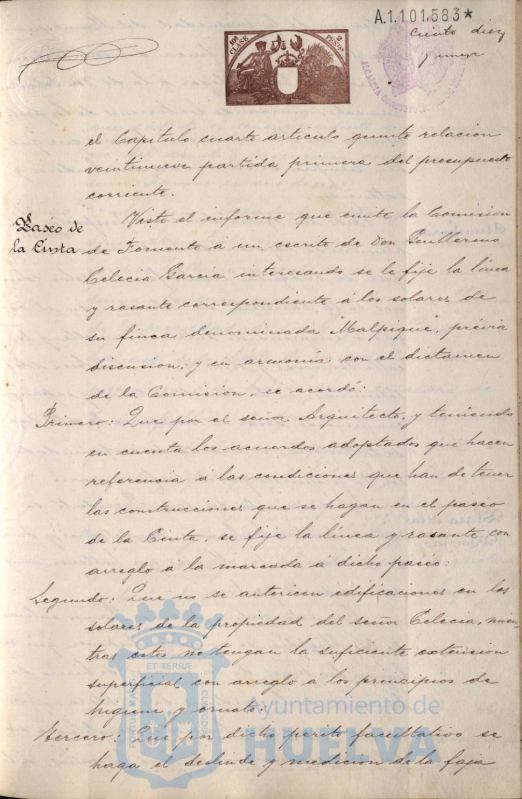 A.1.101.583*
Ciento diez
10ª CLASE
2 PESETAS
el Capítulo cuarto artículo quinto relacion
veintinueve partida primera del presupuesto
corriente.
Paseo de
la Cinta
Visto el informe que emite la Comision
de Fomento á un escrito de Don Guillermo
Celecia Garcia interesando se le fije la linea
y rasante correspondiente á los solares de
su finca denominada "Malpique", prévia
discusion, y en armonía con el dictamen
de la Comisión, se acordó:
Primero: Que por el señor Arquitecto, y teniendo
en cuenta los acuerdos adoptados que hacen
referencia á las condiciones que han de tener
las construcciones que se hagan en el paseo
de la Cinta, se fije la linea y rasante con
arreglo á la marcada á dicho paseo:
Segundo: Que no se autoricen edificaciones en los
solares de la propiedad del señor Celecia, mien-
tras estos no tengan la suficiente extension
superficial con arreglo a los principios de
higiene y ornato:
Tercero: Que por dicho perito facultativo se
haga el deslinde y medicion de la faja
PORTUS MARIS
ET TERRÆ
CUSTODIA
Ayuntamiento de
HUELVA